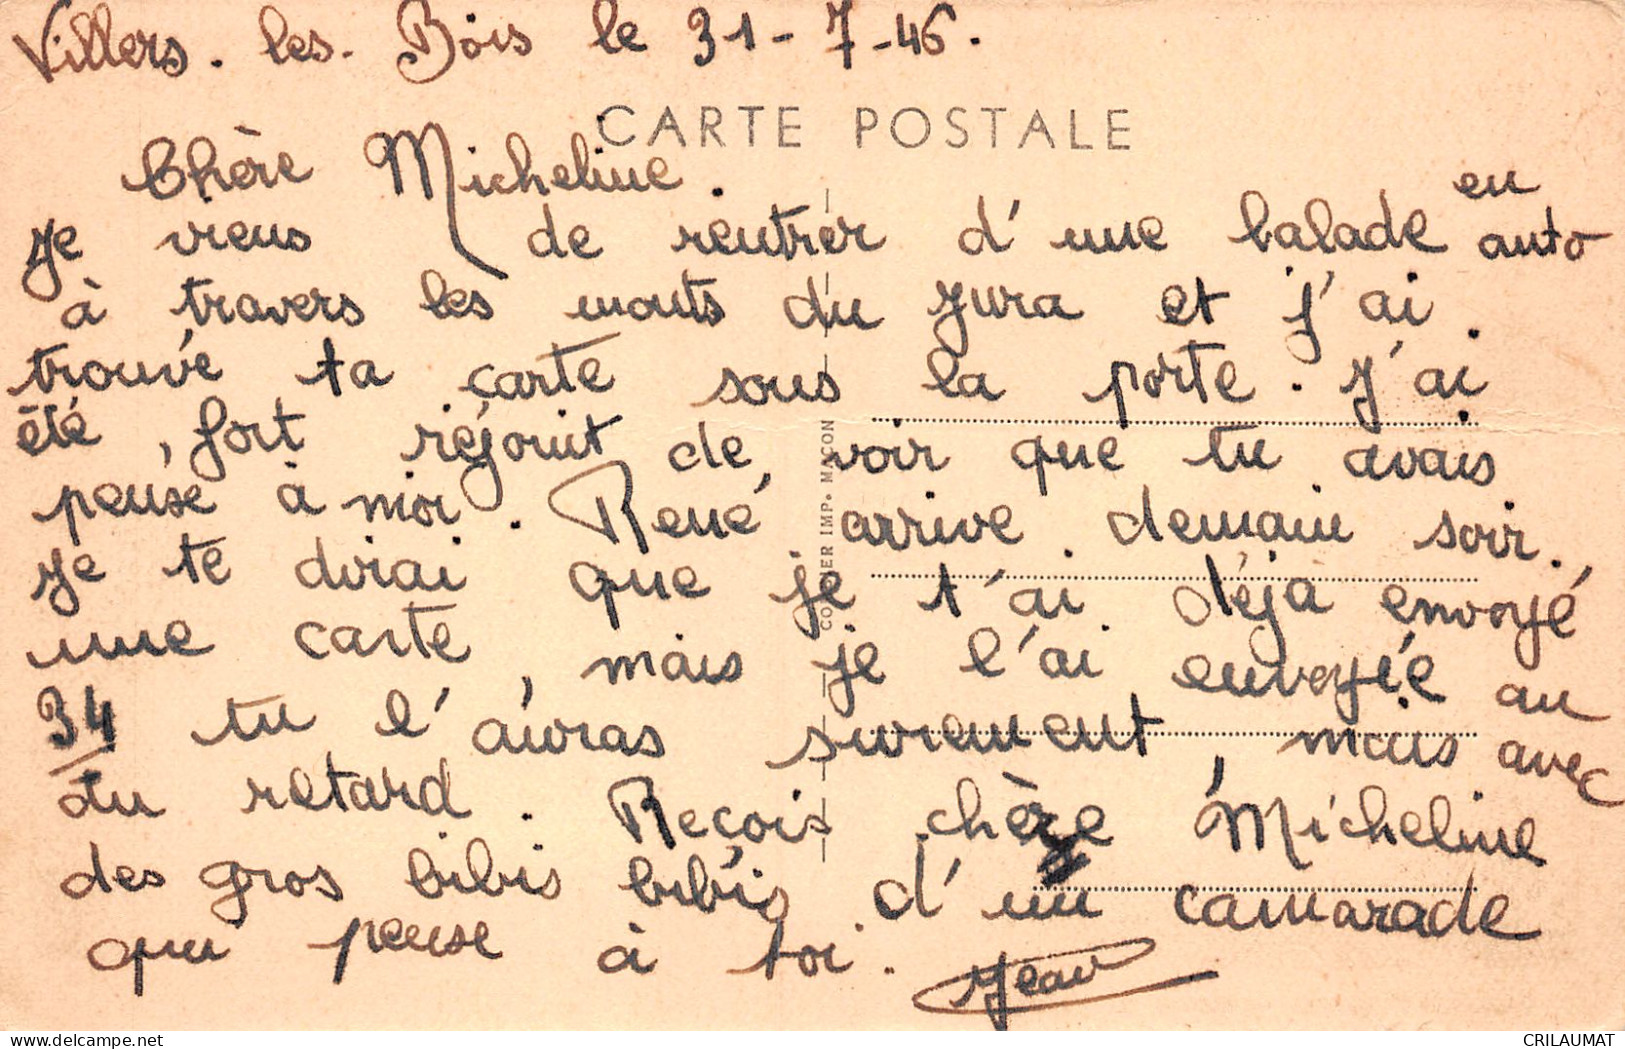 Villers. les. Bois le 31-7-46.
CARTE POSTALE
Chère Micheline.
Je viens de rentrer d'une balade en auto
à travers les monts du Jura et j'ai.
trouvé ta carte sous la porte. J'ai
été, fort réjouit de voir que tu avais
pensé à moi. René arrive demain soir.
Je te dirai que je t'ai déjà envoyé
une carte, mais je l'ai envoyée au
34 tu l'auras surement, mais avec
du retard. Reçois chère Micheline
des gros bibis bibis d'un camarade
qui pense à toi.
Jean
COMBIER IMP. MACON
delcampe.net
CRILAUMAT